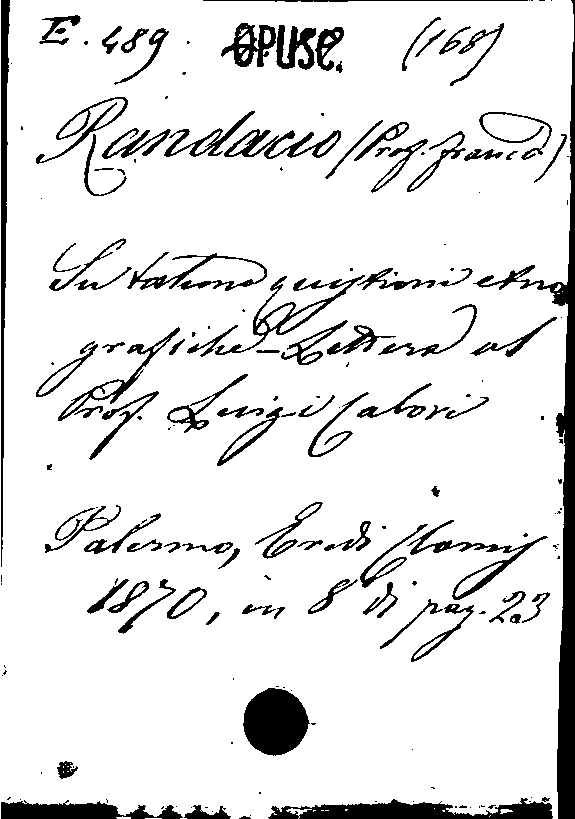 E. 489. OPUSC. (168)
Randacio (Prof. Franco)
Su talune quistioni etno
grafiche - Lettera al
Prof. Luigi Calori
Palermo, Eredi Clamis
1870, in 8 di pag. 23